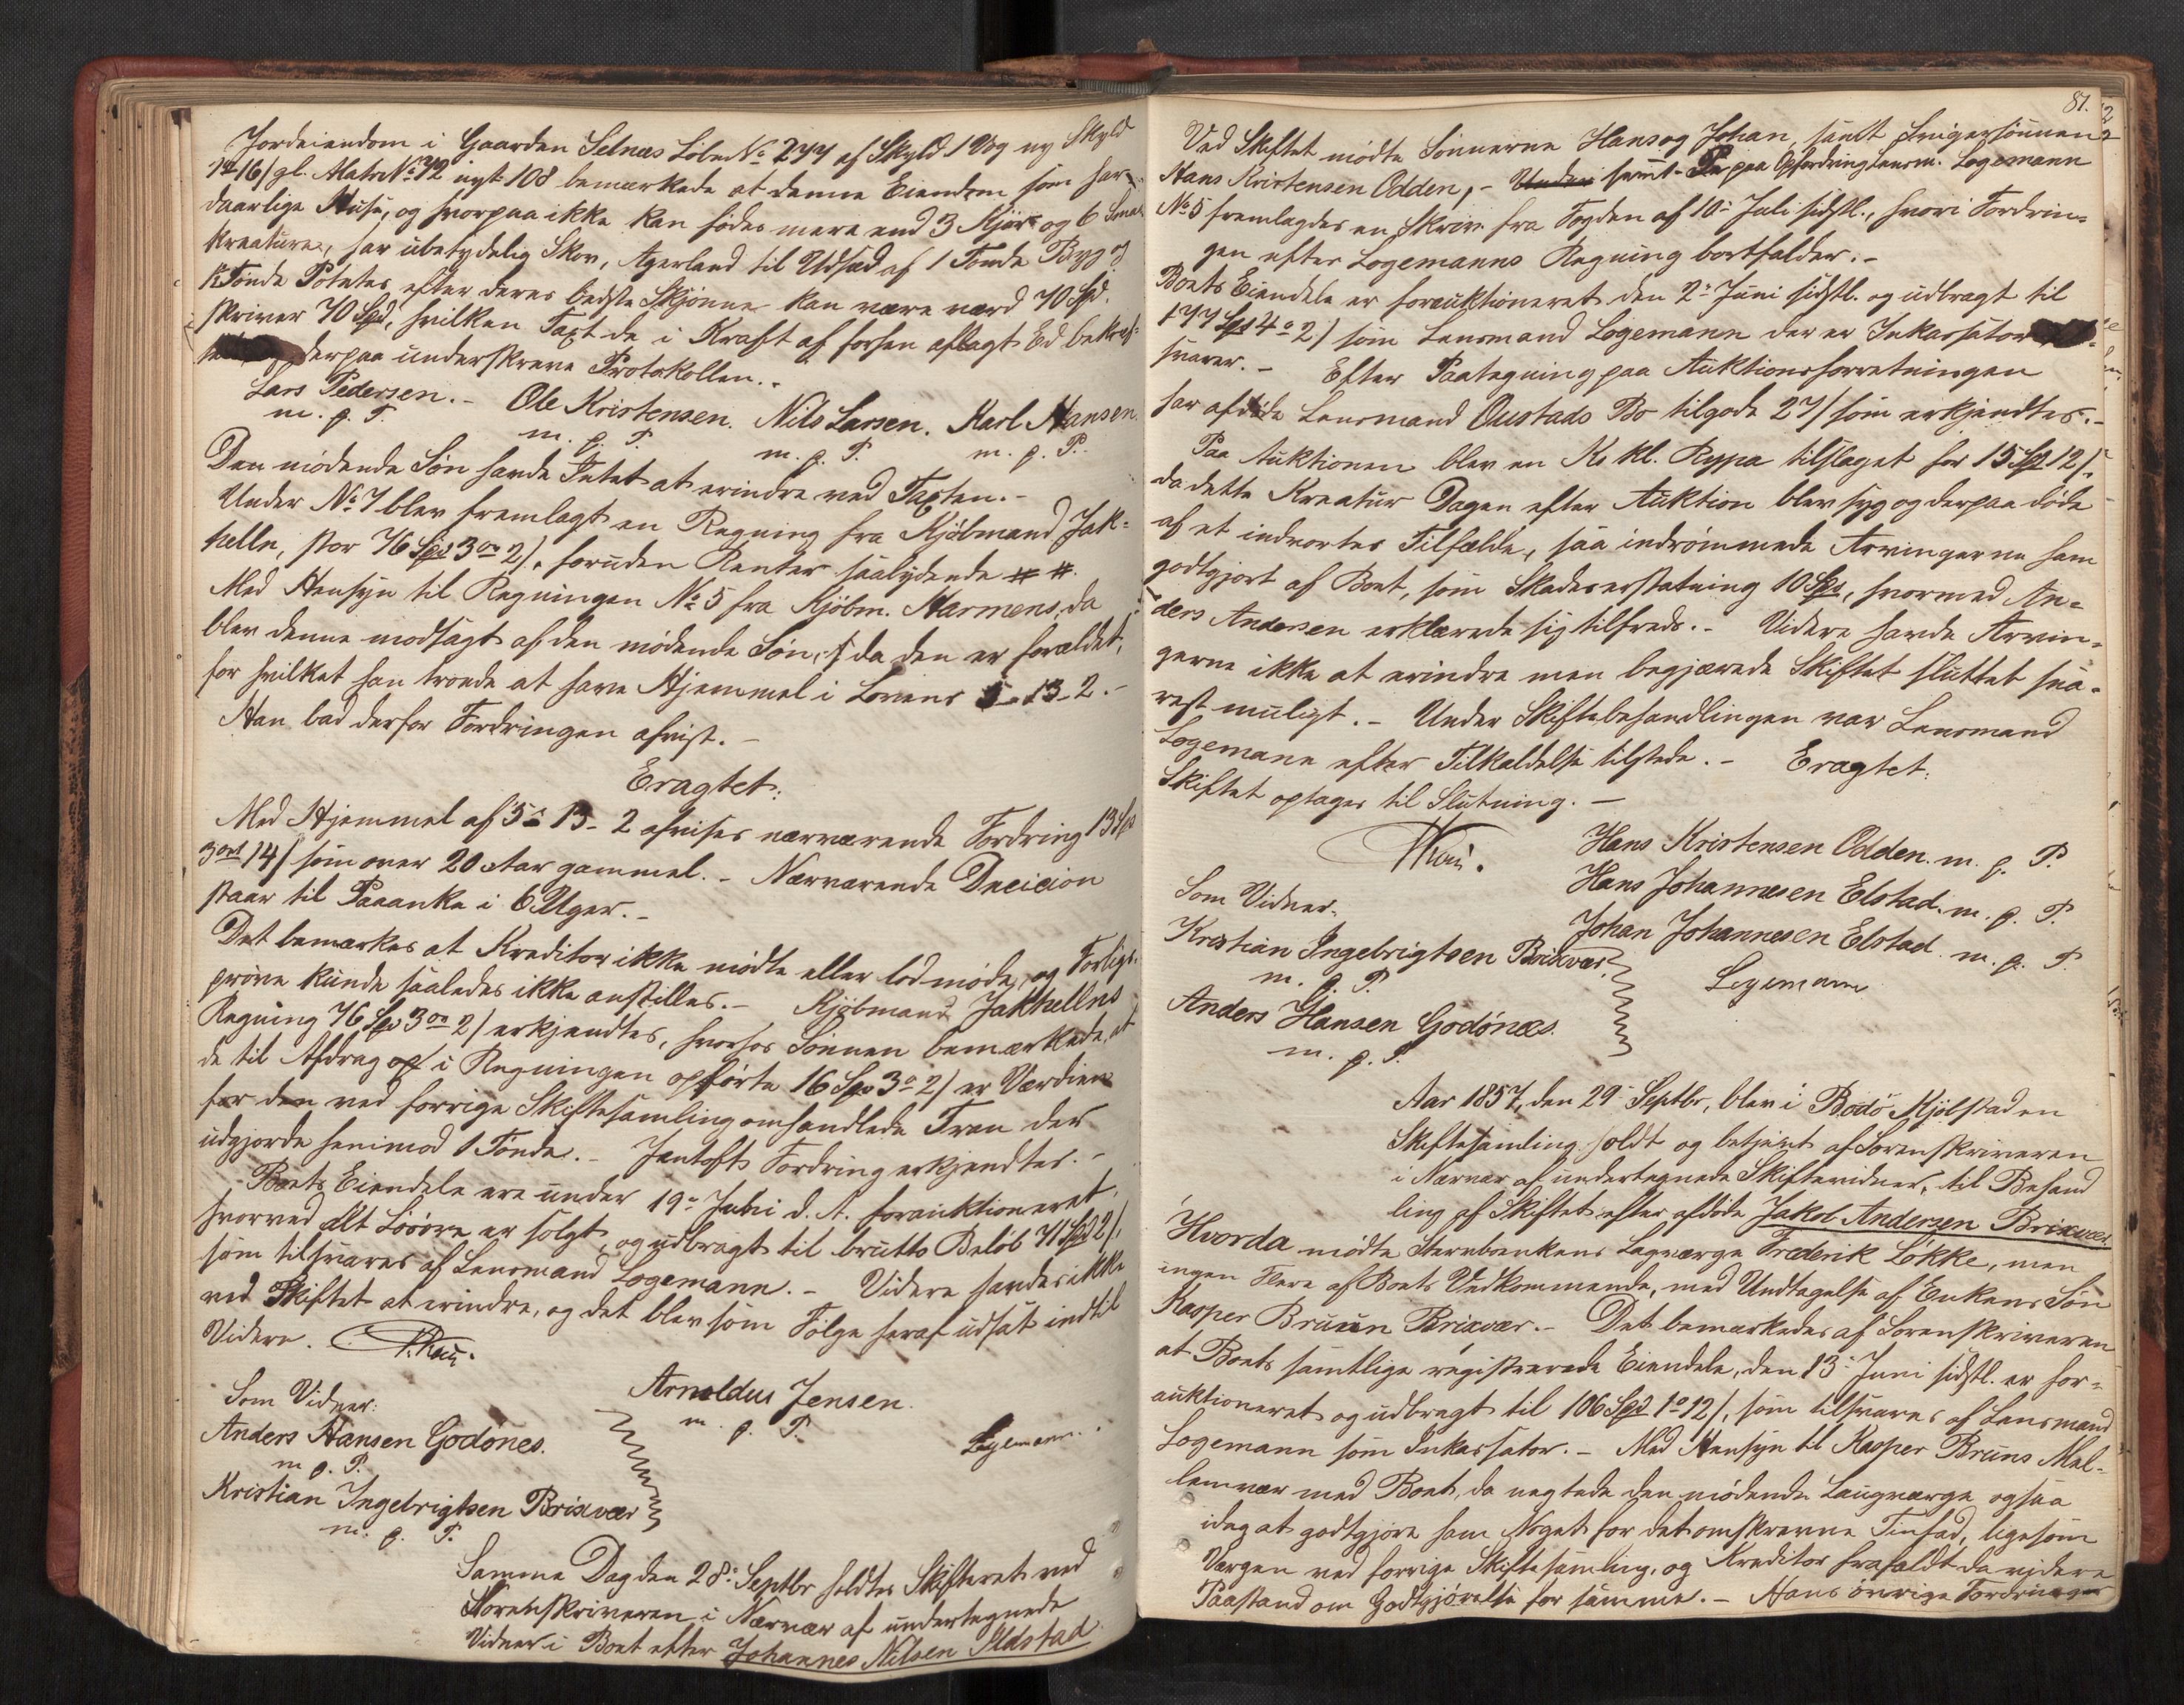 Jordeiendom i Gaarden Selnæs Løbe No 277 af Skyld 1 Vog ny Skyld
1-2-16/ gl. Matr No 72 nyt 108 bemærkede at denne Eiendom som har
daarlige Huse, og hvorpaa ikke kan fødes mere end 3 Kjør og 6 Smaa
kreature, har ubetydelig Skov, Agerland til Udsæd af 1 Tønde Byg og
Tønde Potetes, efter deres bedste Skjønne kan være værd 70 Spd.
skriver 70 Spd, hvilken Taxt de i Kraft af forhen aflagt Ed bekræf=
derpaa underskreve Protokollen.
Lars Pedersen. - Ole Kristensen. Nils Larsen. Karl Hansen.
m. p. P. m. p. P. m. p. P. m. p. P.
Den mødende Søn havde Intet at erindre ved Taxten. -
Under No 7 blev fremlagt en Regning fra Kjøbmand Jak=
helln, stor 76 Spd 3 ort 2/, foruden Renter saalydende # #.
Med Hensyn til Regningen No 5 fra Kjøbm. Harmens, da
blev denne modsagt af den mødende Søn, da den er forældet,
for hvilket han troede at have Hjemmel i Lovens 5-13-2. -
Han bad derfor Fordringen afvist. -
Eragtet:
Med Hjemmel af 5-13-2 afvises nærværende Fordring 13 Spd
3 ort 14/ som over 20 Aar gammel. - Nærværende Decision
staar til Paaanke i 6 Uger. -
Det bemærkes at Kreditor ikke mødte eller lod møde, og Forligs-
prøve kunde saaledes ikke anstilles. - Kjøbmand Jakhellns
Regning 76 Spd 3 ort 2/ erkjendtes, hvorhos Sønnen bemærkede, at
de til Afdrag i Regningen opførte 16 Spd 3 o 2/ er Værdien
for den ved forrige Skiftesamling omhandlede Tran der
udgjorde henimod 1 Tønde. - Jentofts Fordring erkjendtes. -
Boets Eiendele ere under 19de Juni d. A. forauktioneret,
hvorved Alt Løsøre er solgt, og udbragt til brutto Beløb 71 Spd 2/,
som tilsvares af Lensmand Logemann. - Videre havdes ikke
ved Skiftet at erindre, og det blev som Følge heraf udsat indtil
Videre.
Som Vidner: Arnoldus Jensen.
m. p. P.
Anders Hansen Godønes. Logemann.
m. p. P.
Kristian Ingebrigtsen Brixvær
m. p. P.
Samme Dag den 28de Septbr holdtes Skifteret ved
Sorenskriveren i Nærvær af undertegnede
Vidner i Boet efter Johannes Nilsen Ildstad
81.
Ved Skiftet mødte Sønnerne Hans og Johan, samt Svigersønnen
Hans Kristensen Odden, - Under samt paa Opfordring Lensm. Logemann
No 5 fremlagdes en Skriv. fra Fogden af 10de Juli sidstl., hvori Fordrin=
gen efter Logemanns Regning bortfalder. -
Boets Eiendele er forauktioneret den 2de Juni sidstl. og udbragt til
177 Spd 4 o 2/ som Lensmand Logemann der er Inkassator
svarer. - Efter Paategning paa Auktionsforretningen
har afdøde Lensmand Oustads Bo tilgode 27/ som erkjendtes. -
Paa Auktionen blev en Ko kl. Rypa tilslaget for 15 Spd 12/,
da dette Kreatur Dagen efter Auktion blev syg og derpaa døde
af et indvortes Tilfælde, saa indrømmede Arvingerne ham
godtgjort af Boet, som Skadeserstatning 10 Spd, hvormed An=
ders Andersen erklærede sig tilfreds. - Videre havde Arvin=
gerne ikke at erindre men begjærede Skiftet sluttet sna=
rest muligt. - Under Skiftebehandlingen var Lensmand
Logemann efter Tilkaldelse tilstede. - Eragtet:
Skiftet optages til Slutning. -
Hans Kristensen Odden. m. p. P.
Som Vidner. Hans Johannesen Elstad. m. p. P.
Johan Johannesen Elstad. m. p. P.
Kristian Ingebrigtsen Brixvær.
m. p. P. Logemann
Anders Hansen Godønæs.
m. p. P.
Aar 1857, den 29de Septbr, blev i Bodø Kjøbstad en
Skiftesamling holdt og betjent af Sorenskriveren
i Nærvær af undertegnede Skiftevidner, til Behand
ling af Skiftet efter afdøde Jakob Andersen Brixvær
Hvorda mødte Sterbboenkens Lagværge Frederik Løkke, men
ingen Flere af Boets Vedkommende, med Undtagelse af Enkens Søn
Kasper Bruun Brixvær. - Det bemærkedes af Sorenskriveren
at Boets samtlige registrerede Eiendele, den 13de Juni sidstl. er for=
auktioneret og udbragt til 106 Spd 1 o 12/, som tilsvares af Lensmand
Logemann som Inkassator. - Med Hensyn til Kasper Bruns Mel=
lemvær med Boet, da negtede den mødende Laugværge ogsaa
idag at godtgjøre ham Noget for det omskrevne Tinfad, ligesom
Værgen ved forrige Skiftesamling, og Kreditor frafaldt da videre
Paastand om Godtgjørelse for samme. - Hans øvrige Fordringer